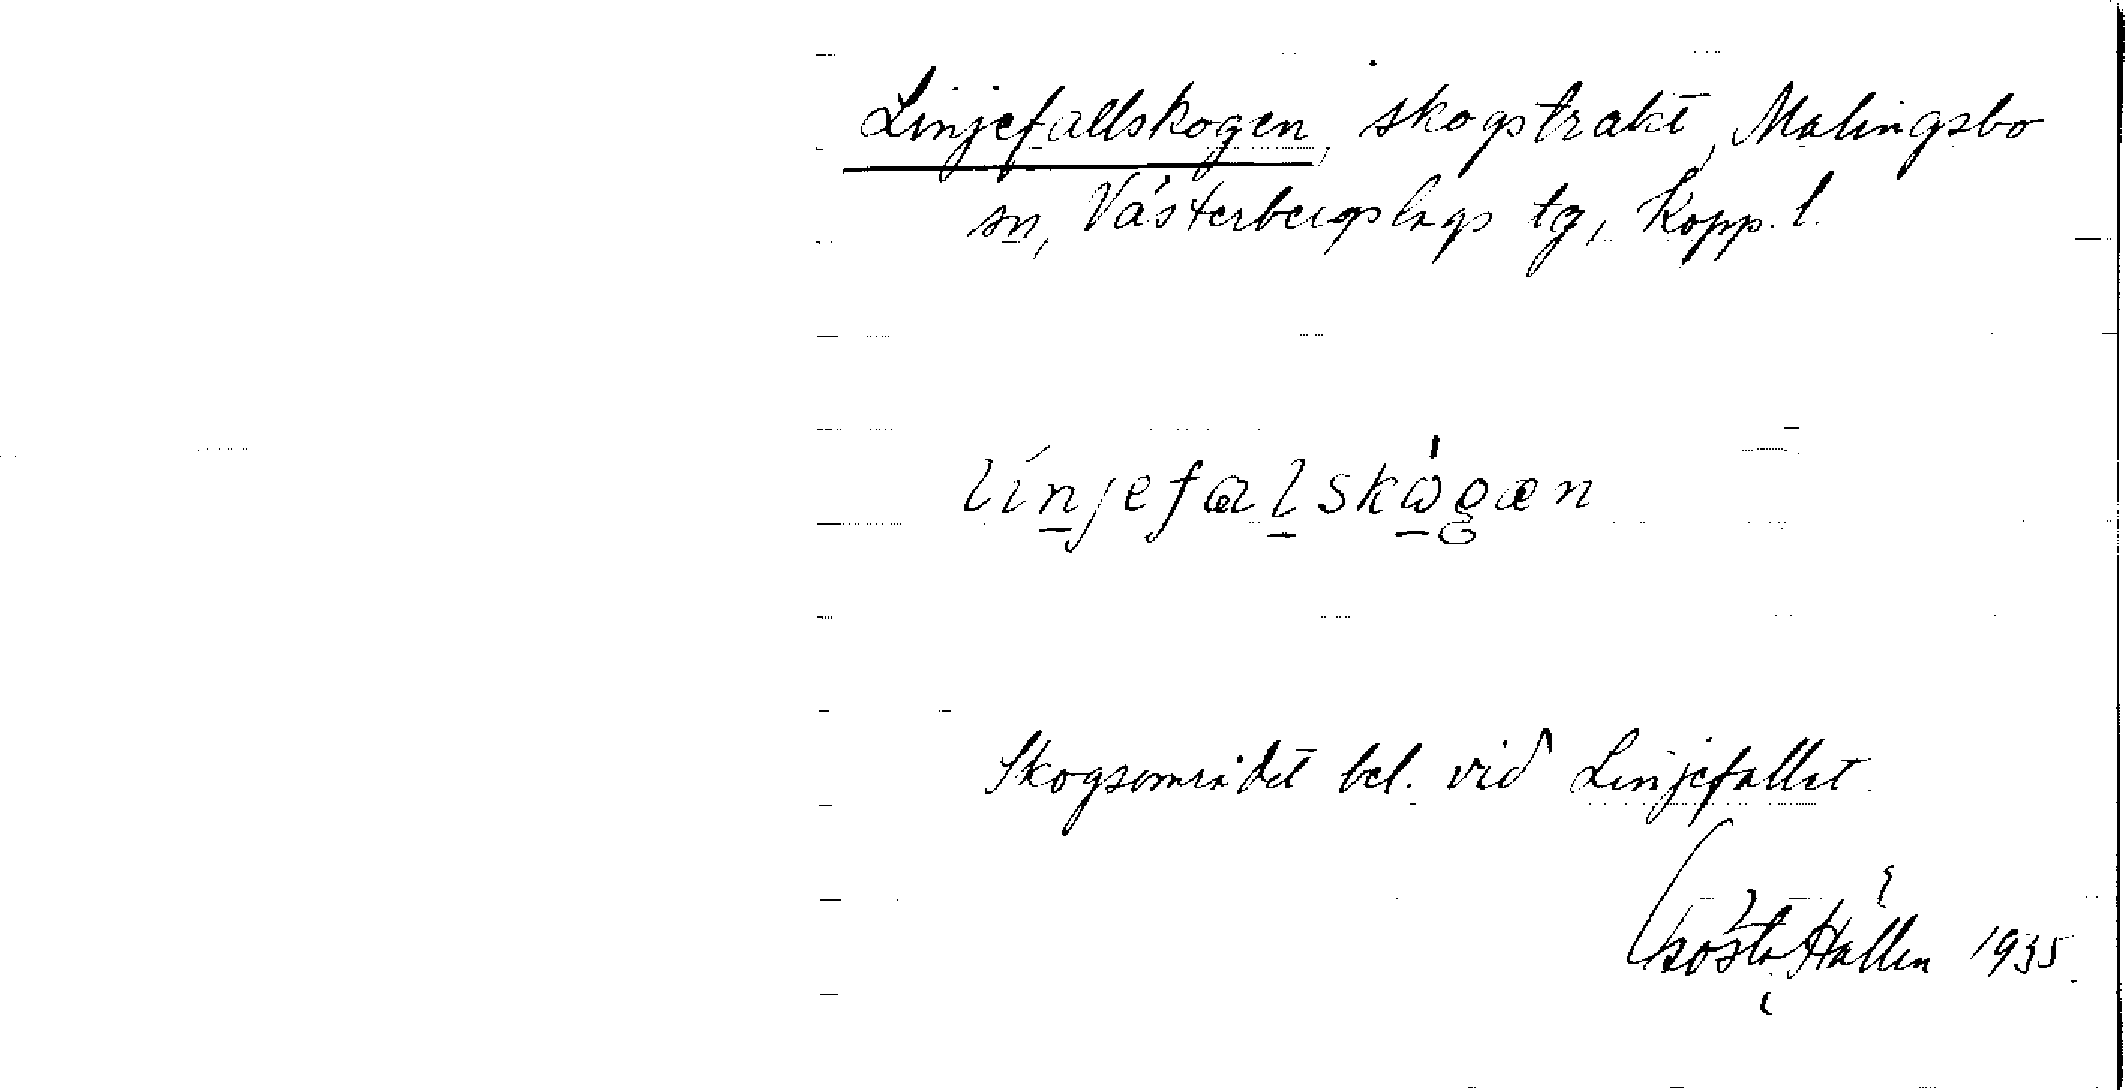 Linjefallskogen, skogstrakt, Malingsbo
sn, Västerbergslags tg, Kopp. l.
línjefalskògæn
Skogsområdet bel. vid Linjefallet.
Gösta Hallén 1935.